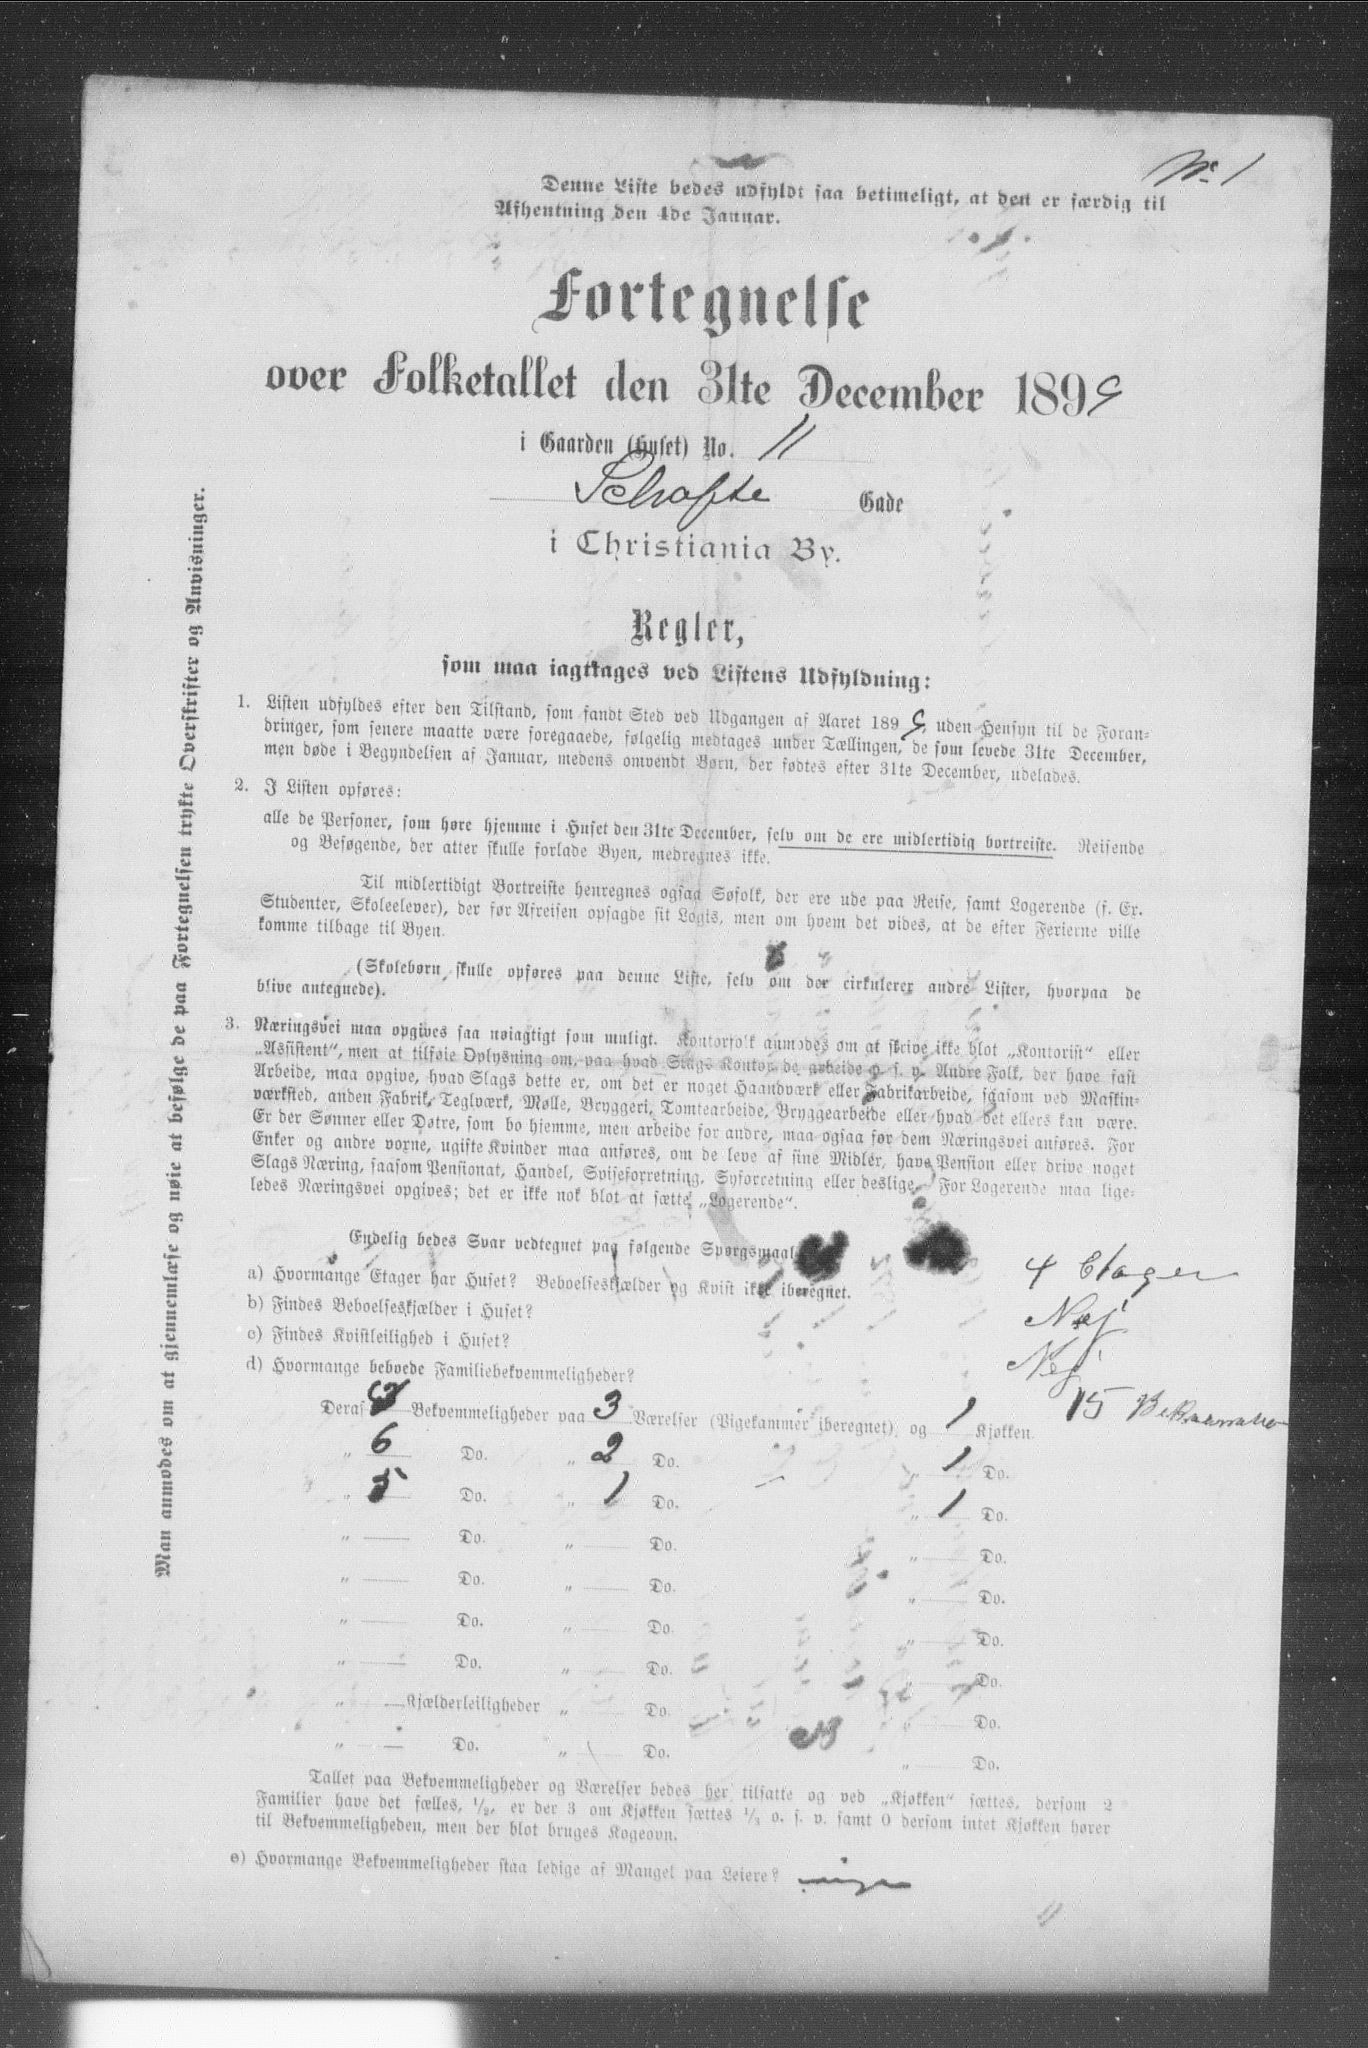 No 1
Denne Liste bedes udfyldt saa betimeligt, at den er færdig til
Afhentning den 4de Januar.
Fortegnelse
over Folketallet den 31te December 1899
i Gaarden (Huset) No. 11
Schafte Gade
i Christiania By.
Regler,
som maa iagttages ved Listens Udfyldning:
1. Listen udfyldes efter den Tilstand, som fandt Sted ved Udgangen af Aaret 1899, uden Hensyn til de Foran-
dringer, som senere maatte være foregaaede, følgelig medtages under Tællingen, de som levede 31te December,
men døde i Begyndelsen af Januar, medens omvendt Børn, der fødtes efter 31te December, udelades.
2. I Listen opføres:
alle de Personer, som høre hjemme i Huset den 31te December, selv om de ere midlertidig bortreiste. Reisende
og Besøgende, der atter skulle forlade Byen, medregnes ikke.
Til midlertidigt Bortreiste henregnes ogsaa Søfolk, der ere ude paa Reise, samt Logerende (f. Ex.
Studenter, Skoleelever), der før Afreisen opsagde sit Logis, men om hvem det vides, at de efter Ferierne ville
komme tilbage til Byen.
(Skolebørn skulle opføres paa denne Liste, selv om der cirkulerer andre Lister, hvorpaa de
blive antegnede).
3. Næringsvei maa opgives saa nøiagtigt som muligt. Kontorfolk anmodes om at skrive ikke blot „Kontorist“ eller
„Assistent“, men at tilføie Oplysning om, paa hvad Slags Kontor de arbeide o. s. v. Andre Folk, der have fast
Arbeide, maa opgive, hvad Slags dette er, om det er noget Haandværk eller Fabrikarbeide, saasom ved Maskin-
værksted, anden Fabrik, Teglværk, Mølle, Bryggeri, Tomtearbeide, Bryggearbeide eller hvad det ellers kan være.
Er der Sønner eller Døtre, som bo hjemme, men arbeide for andre, maa ogsaa for dem Næringsvei anføres. For
Enker og andre voxne, ugifte Kvinder maa anføres, om de leve af sine Midler, have Pension eller drive noget
Slags Næring, saasom Pensionat, Handel, Spiseforretning, Syforretning eller deslige. For Logerende maa lige-
ledes Næringsvei opgives; det er ikke nok blot at sætte „Logerende“.
Endelig bedes Svar vedtegnet paa følgende Spørgsmaal:
a) Hvormange Etager har Huset? Beboelseskjælder og Kvist ikke iberegnet. 4 Etager
b) Findes Beboelseskjælder i Huset? Nej
c) Findes Kvistleilighed i Huset? Nej
d) Hvormange beboede Familiebekvemmeligheder? 15
Deraf Bekvemmeligheder paa 3 Værelser (Pigekammer iberegnet) og 1 Kjøkken.
„ 6 Do. „ 2 Do. „ 1 Do.
„ 5 Do. „ 1 Do. „ 1 Do.
„ Do. „ Do. „ Do.
„ Do. „ Do. „ Do.
„ Do. „ Do. „ Do.
„ Do. „ Do. „ Do.
„ Kjælderleiligheder „ Do. „ Do.
„ Do. „ Do. „ Do.
Tallet paa Bekvemmeligheder og Værelser bedes her tilsatte og ved „Kjøkken“ sættes, dersom 2
Familier have det fælles, 1/2, er der 3 om Kjøkken sættes 1/3 o. s. v. samt 0 dersom intet Kjøkken hører
til Bekvemmeligheden, men der blot bruges Kogeovn.
e) Hvormange Bekvemmeligheder staa ledige af Mangel paa Leiere? ingen
Man anmodes om at gjennemlæse og nøie at befølge de paa Fortegnelsen trykte Overskrifter og Anvisninger.